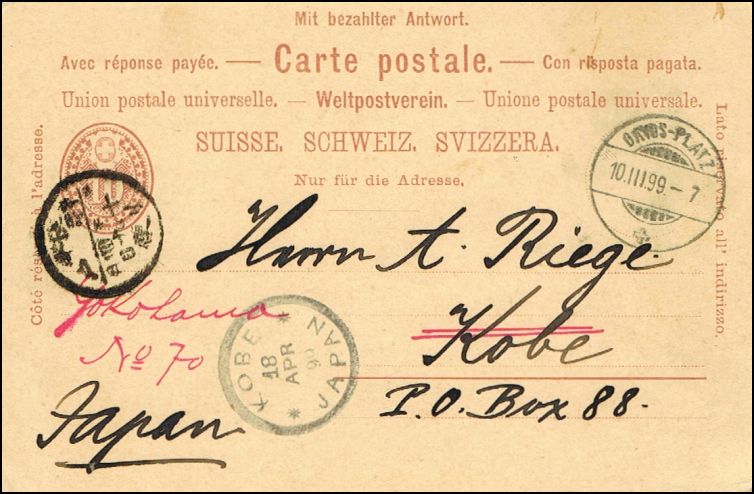 Mit bezahlter Antwort.
Avec réponse payée. — Carte postale. — Con risposta pagata.
Union postale universelle. — Weltpostverein. — Unione postale universale.
SUISSE. SCHWEIZ. SVIZZERA.
Nur für die Adresse.
Côté réservé à l'adresse.
Lato riservato all' indirizzo.
10
DAVOS-PLATZ
10.III.99.-7
Herrn A. Riege.
Kobe
P.O. Box 88.
Japan
Yokohama
No 70
KOBE
18
APR
99
JAPAN